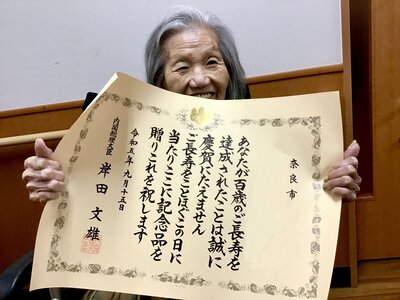 奈良市
あなたが百歳のご長寿を
達成されたことは誠に
慶賀にたえません
ご長寿をことほぐこの日に
当たりここに記念品を
贈りこれを祝します
令和五年九月十五日
内閣総理大臣 岸田文雄